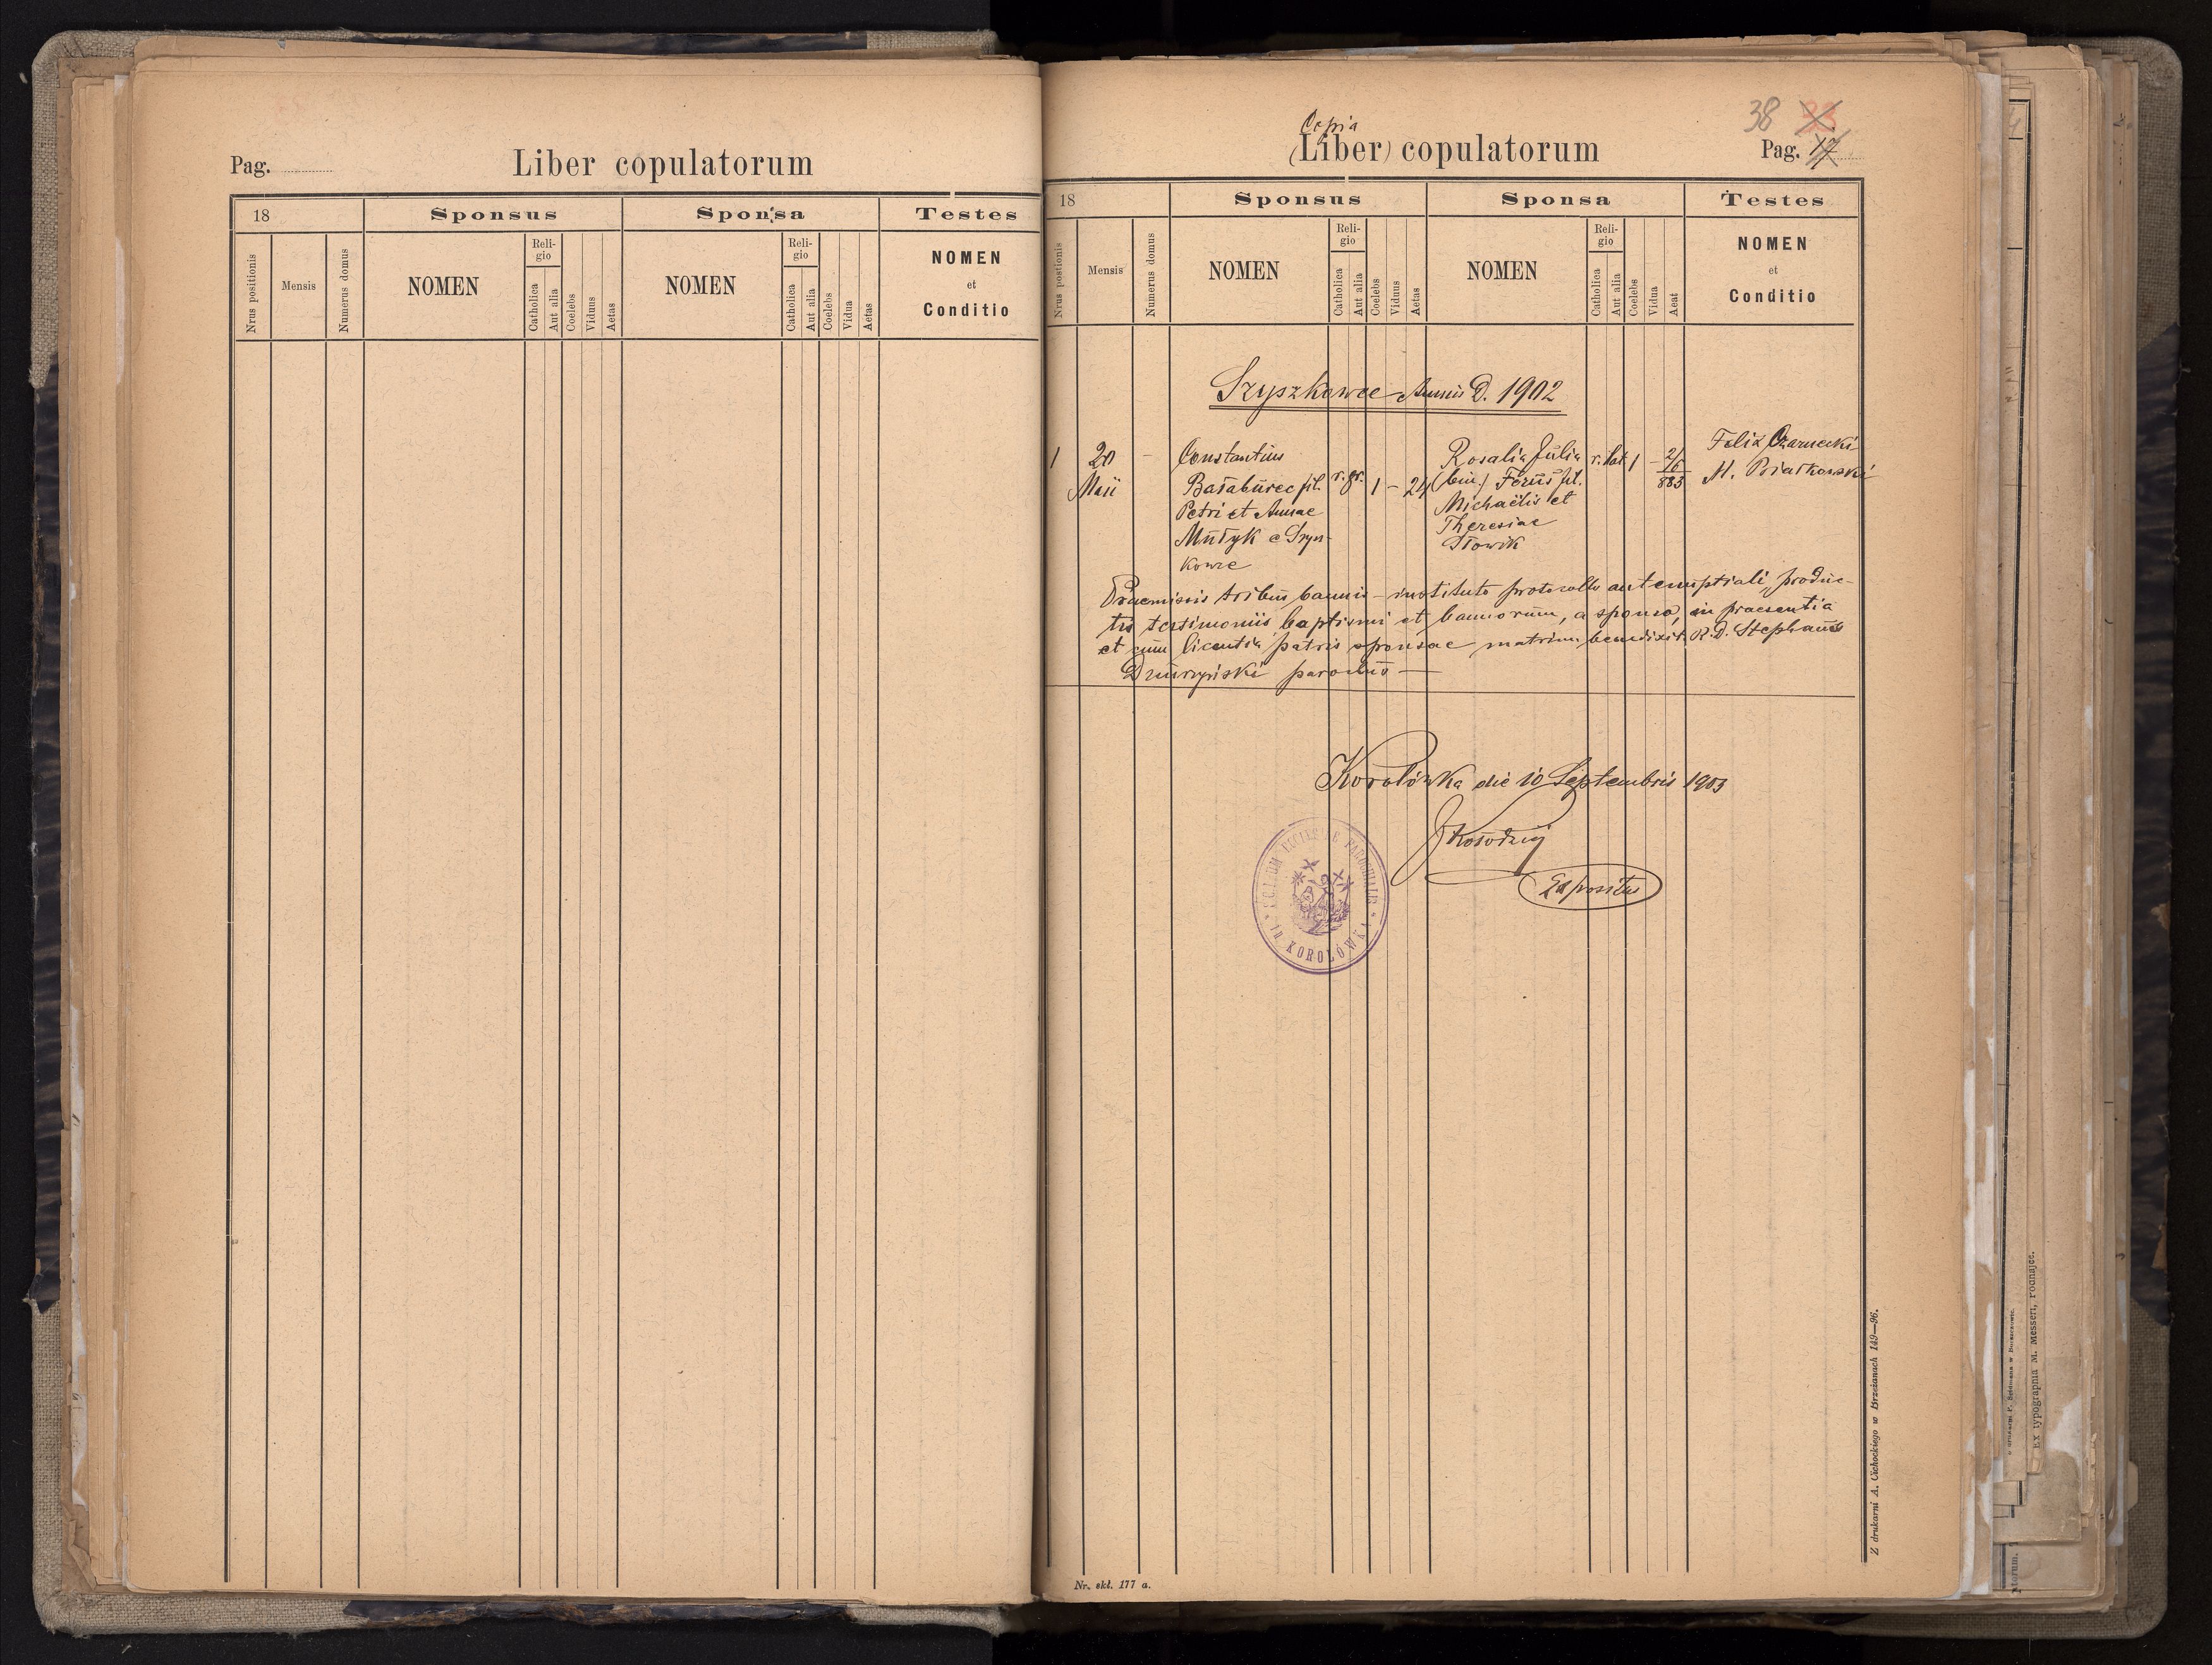 Pag.
Liber copulatorum
18
Sponsus
Sponsa
Testes
Nrus positionis
Mensis
Numerus domus
NOMEN
Reli-
gio
Catholica
Aut alia
Coelebs
Viduus
Aetas
NOMEN
Reli-
gio
Catholica
Aut alia
Coelebs
Vidua
Aetas
NOMEN
et
Conditio
38
33
Copia
(Liber) copulatorum
Pag. 17
18
Sponsus
Sponsa
Testes
Nrus postionis
Mensis
Numerus domus
NOMEN
Reli-
gio
Catholica
Aut alia
Coelebs
Viduus
Aetas
NOMEN
Reli-
gio
Catholica
Aut alia
Coelebs
Vidua
Aeat
NOMEN
et
Conditio
Szyszkowce Annus D. 1902
1
20
Maii
Constantius
Bałabürec fil.
Petri et Annae
Müłyk e Szysz-
kowce
r. gr.
1 - 24
Rosalia Jülia
(bin.) Ferüs fil.
Michaëlis et
Theresiae
Słowik
r. lat
1 -
2/6
883
Felix Czarnecki
M. Piatkowski
Praemissis tribus bannis - instituto protocollo antenuptiali, produc-
tis testimoniis baptismi et bannorüm, a sponso, in praesentia
et cüm licentia patris sponsae matrim. benedixit R. D. Stephanüs
parochüs —
Korolówka die 10 Septembris 1903
Expositus
SIGILLUM ECCLESIAE PAROCHIALIS
in KOROLÓWKA
Nr. skł. 177 a.
Z drukarni A. Cichockiego w Brzeżanach 149—96.
Ex typographia M. Messeri, Podhajce.